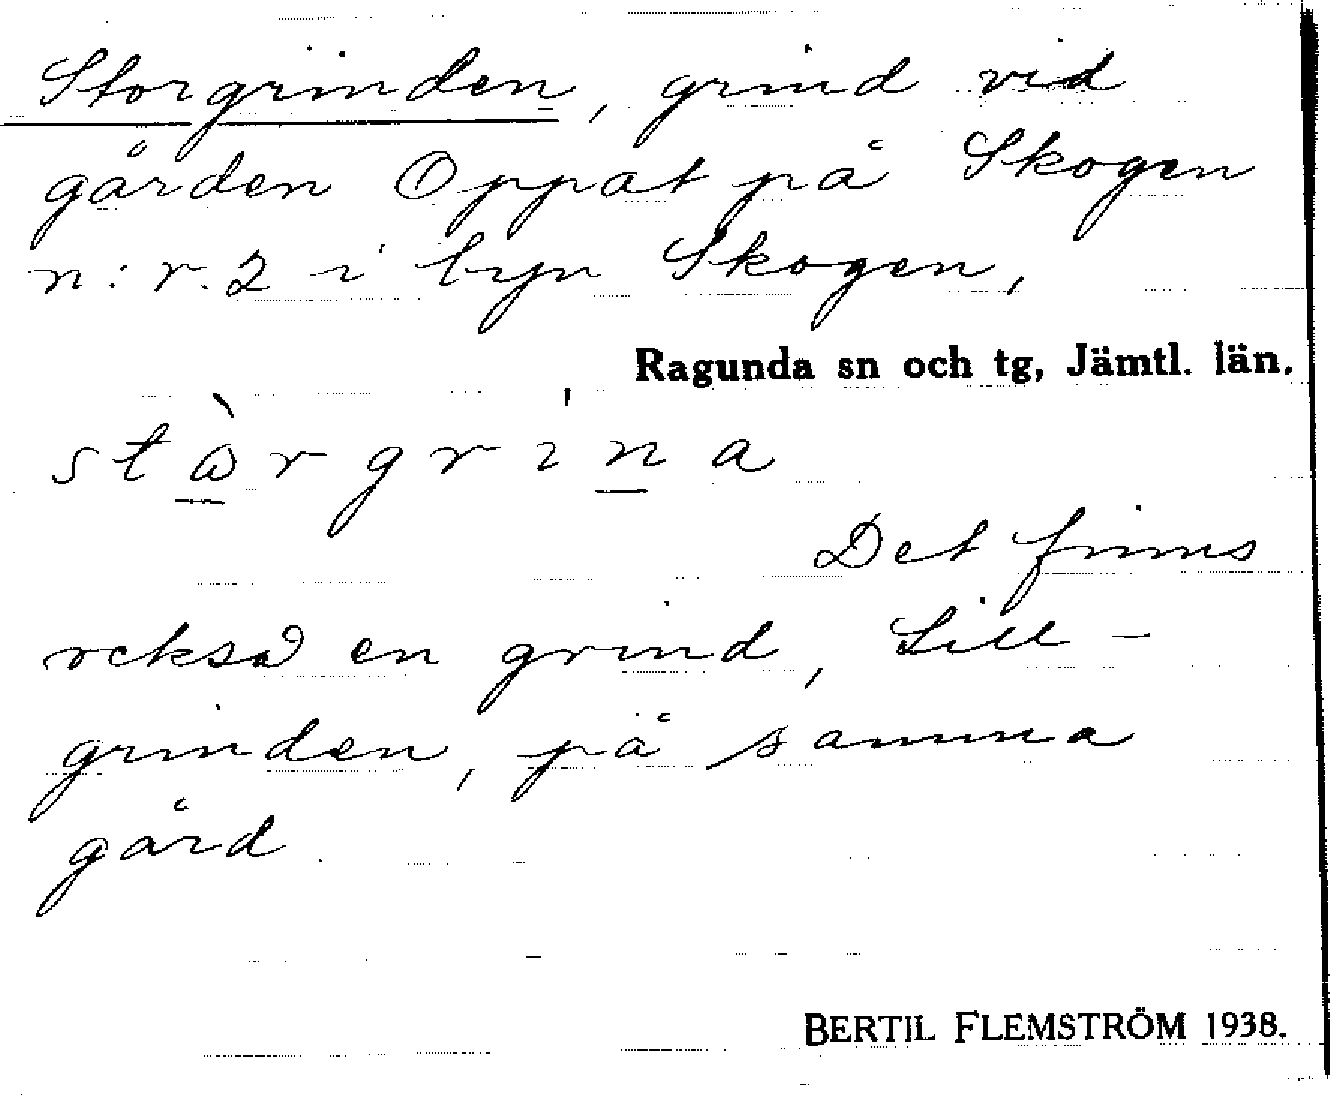 Storgrinden, grind vid
gården Oppat på Skogen
n:r. 2 i byn Skogen,
Ragunda sn och tg, Jämtl. län.
stὼrgrina
Det finns
också en grind, Lill-
grinden, på samma
gård.
BERTIL FLEMSTRÖM 1938.